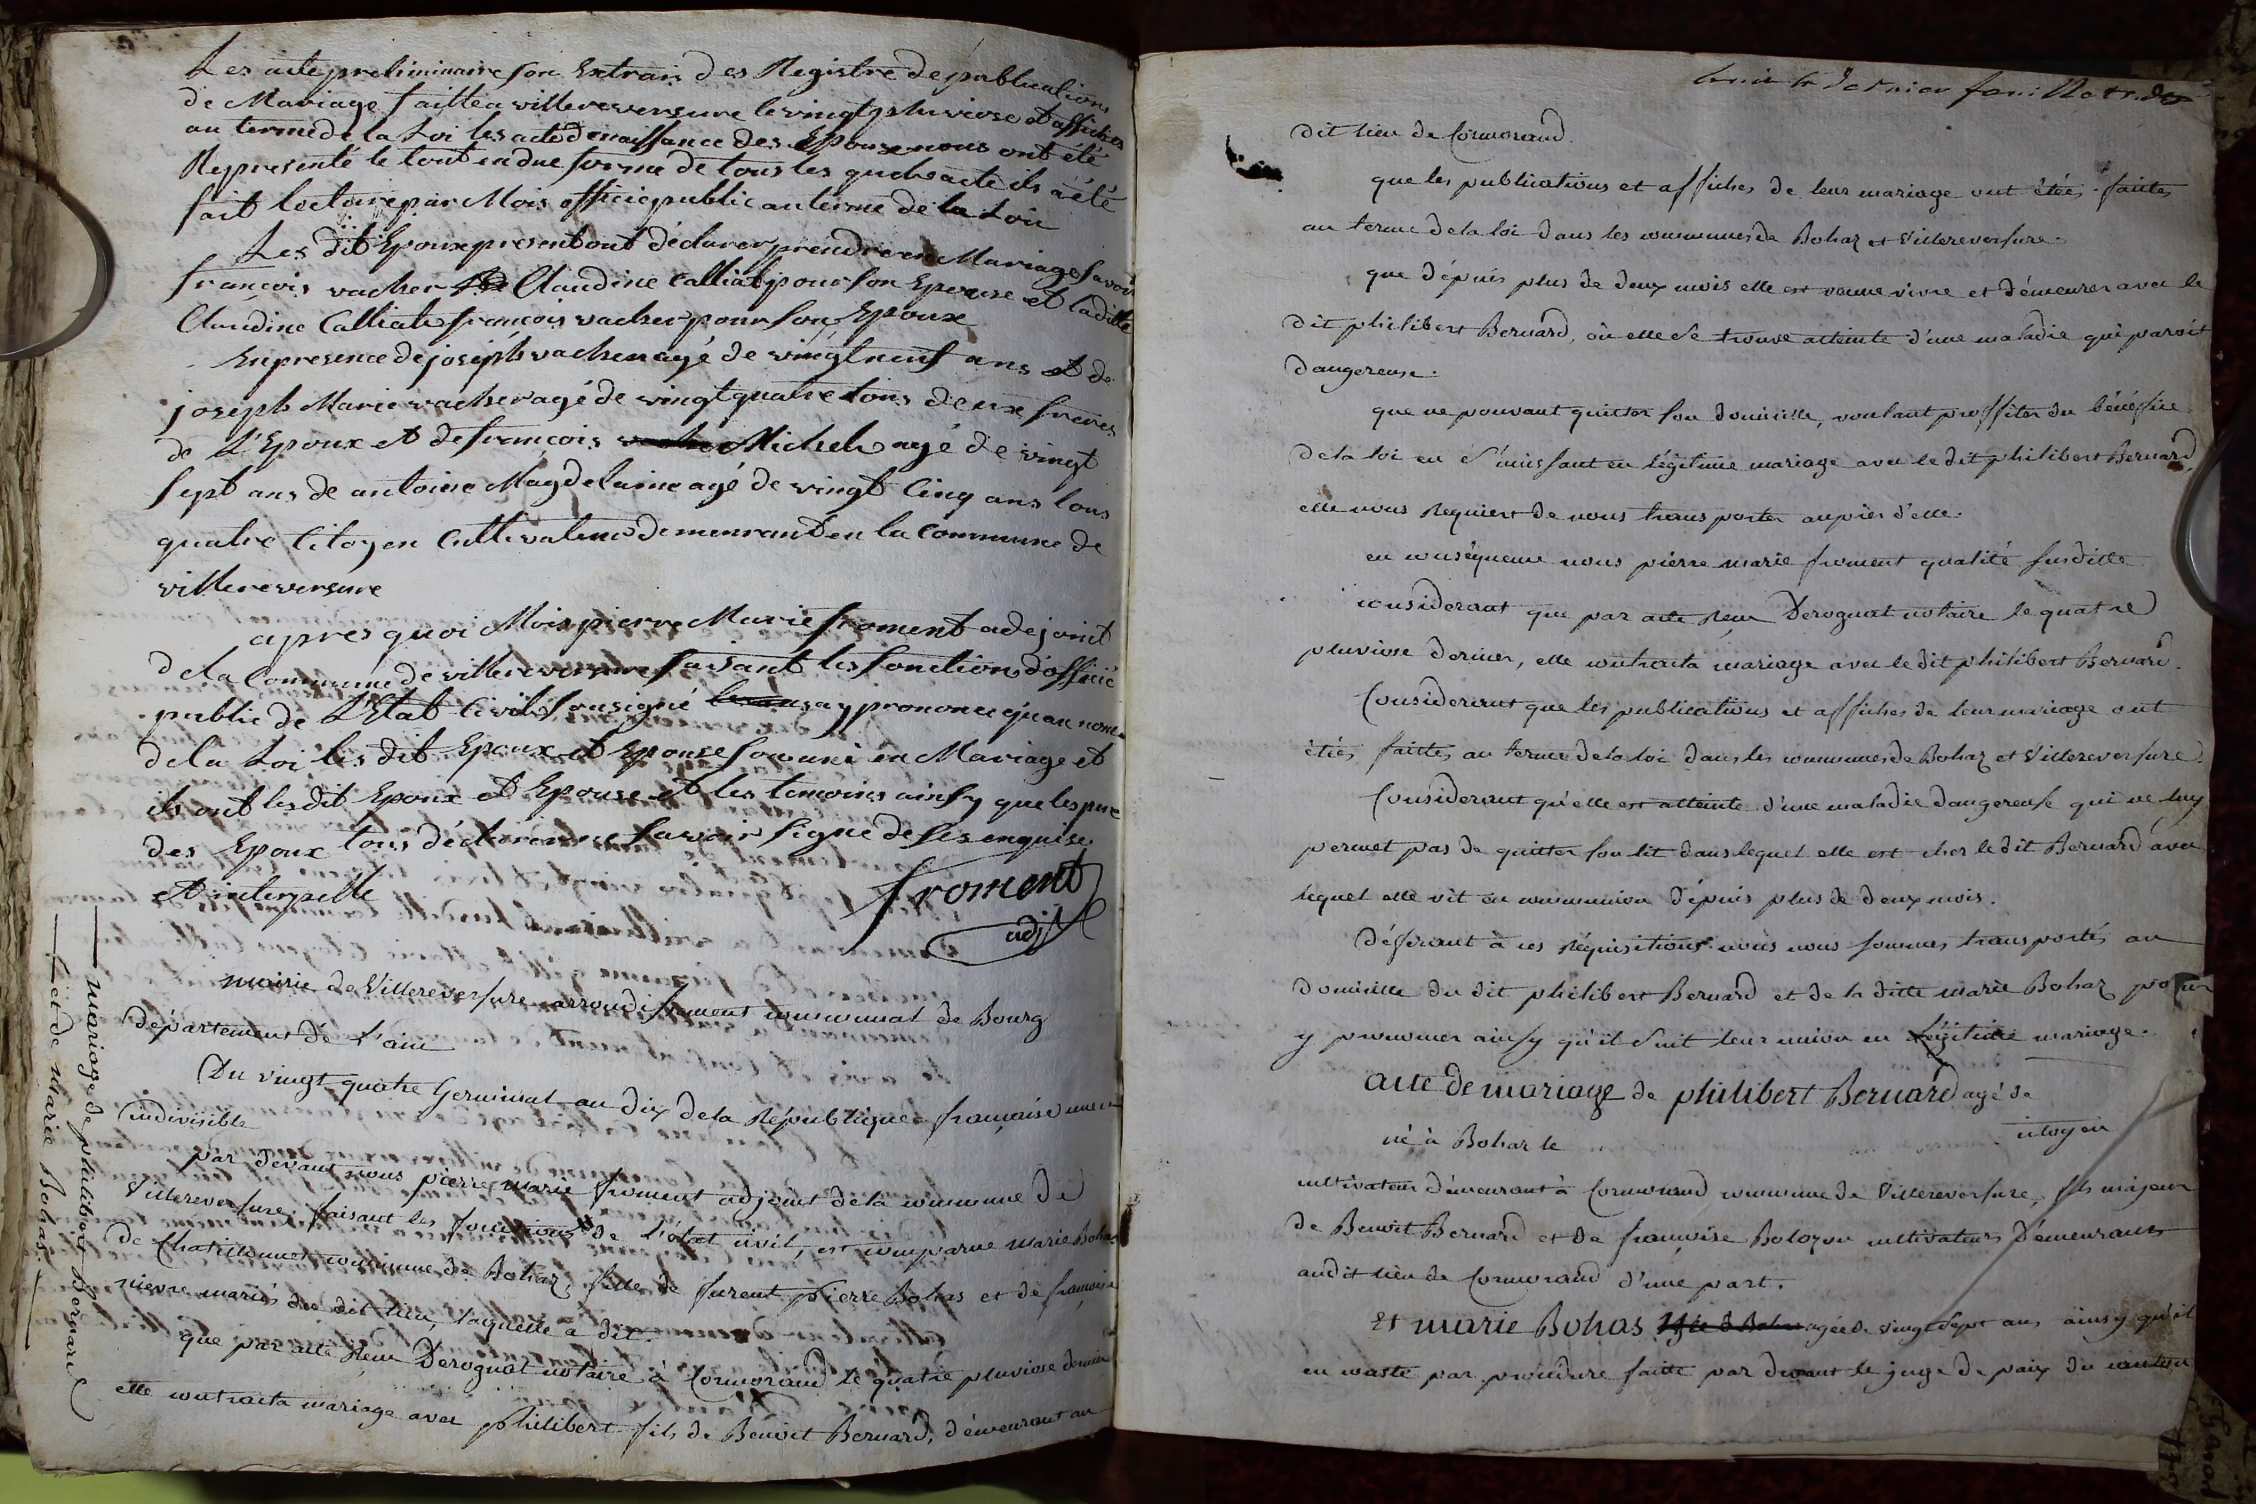 Les acte preliminaire son Extrais des Registre de publications
de Mariage faitte a villereversure le vingt pluviose et affiches
au terme de la Loi les acte de naissance des Epoux nous ont été
Representé le tout en due forme de tous les quels acte ils a été
fait lecture par Mois officié public au terme de la Loix
Les dit Epoux present ont déclarer prendre en Mariage savoir
françois vacher Claudine Calliat pour son Epouse et laditte
Claudine Calliat françois vacher pour son Epoux
En presence de joseph vacher agé de vingt neuf ans et de
joseph Marie vacher agé de vingt quatre tous deux freres
de L'Epoux et de françois Michel agé de vingt
sept ans de antoine Magdelaine agé de vingt Cinq ans tous
quatre Citoyen Cultivateur demeurant en la Commune de
villereversure
apres quoi Mois pierre Marie froment adejoint
de la Commune de villereversure faisant les fonction d'officié
public de L'Etat Civil sousigné ay prononcé qu'au nom
de la Loi les dit Epoux et Epouse son uni en Mariage et
ils ont les dit Epoux et Epouse et les temoins ainsy que les pere
des Epoux tous déclarer ne savoir signé de ses enquise
et interpellé
froment
adj
mairie de Villereversure arrondissement communal de Bourg
département de l'ain
Du vingt quatre Germinal an dix de la République française une et
indivisible
par devant nous pierre marie froment adjoint de la commune de
Villereversure faisant les fonctions de l'état civil, est comparue marie Bohas
de Chatillonnet commune de Bohaz, fille de furent pierre Bohas et de françoise
nievre mariés du dit lieu, laquelle a dit.
que par acte Reçu Derognat notaire à Cormorand le quatre pluviose dernier
elle contracta mariage avec philibert fils de Benoit Bernard, démeurant au
mariage de philibert Bernard
et de marie Bohas.
dernier feuillet
dit lieu de Cormorand.
que les publications et affiches de leur mariage ont étées faites
au terme de la loi dans les communes de Bohaz et Villereversure.
que dépuis plus de deux mois elle est venue vivre et démeurer avec le
dit philibert Bernard, où elle se trouve atteinte d'une maladie qui paroit
dangereuse.
que ne pouvant quitter son domicille, voulant proffiter du bénéfice
de la loi en s'unissant en légitime mariage avec le dit philibert Bernard,
elle nous Requiert de nous transporter aupiès d'elle.
en conséquence nous pierre marie froment qualité susditte
considerant que par acte Reçu Derognat notaire le quatre
pluviose dernier, elle contracta mariage avec le dit philibert Bernard.
Considerant que les publications et affiches de leur mariage ont
étées faittes au terme de la loi dans les communes de Bohaz et Villereversure.
Considerant qu'elle est atteinte d'une maladie dangereuse qui ne luy
permet pas de quitter son lit dans lequel elle est chez le dit Bernard avec
lequel elle vit en communion dépuis plus de deux mois.
déférant à ces réquisitions nous nous sommes transportés au
domicille du dit philibert Bernard et de la ditte marie Bohaz pour
y prononcer ainsy qu'il suit leur union en légitime mariage.
acte de mariage de philibert Bernard agé de
né à Bohaz le citoyen
cultivateur démeurant à Cormorand commune de Villereversure, fils majeur
de Benoit Bernard et de françoise Bolozon cultivateurs démeurants
audit lieu de Cormorand d'une part.
Et marie Bohas agée de vingt sept ans ainsy qu'il
en conste par procédure faitte par devant le juge de paix du canton